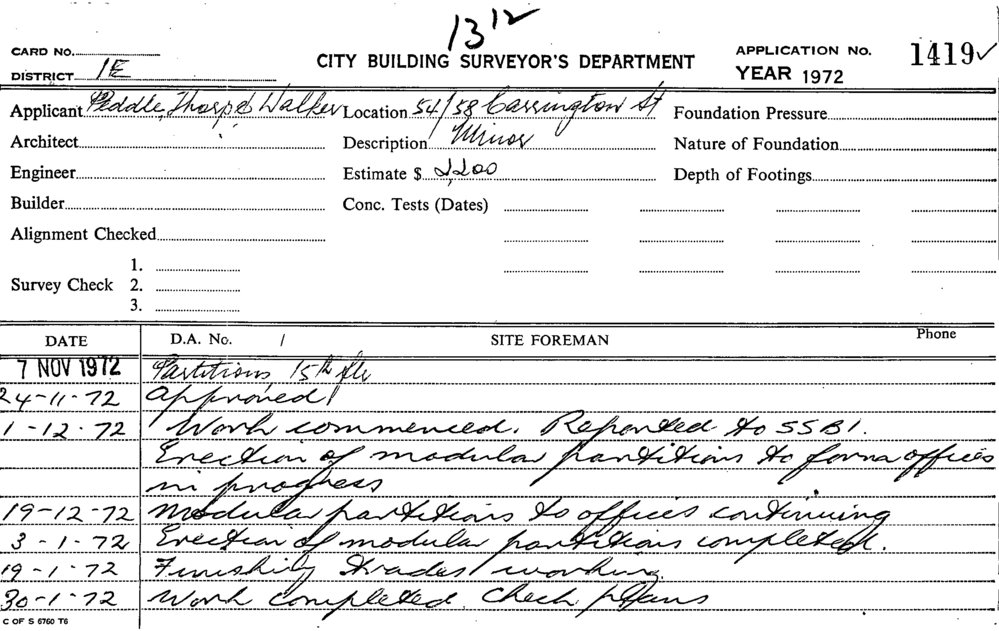 13 12
CARD NO.
CITY BUILDING SURVEYOR'S DEPARTMENT
APPLICATION No. 1419 ✓
DISTRICT 1E
YEAR 1972
Applicant Peddle, Thorp & Walker Location 54/58 Carrington St Foundation Pressure
Architect " Description Minor Nature of Foundation
Engineer Estimate $ 2,200 Depth of Footings
Builder Conc. Tests (Dates)
Alignment Checked
1.
Survey Check 2.
3.
DATE D.A. No. / SITE FOREMAN Phone
7 NOV 1972 Partitions 15th flr
24-11-72 Approved
1-12-72 Work commenced. Reported to SSBI.
Erection of modular partitions to form offices
in progress
19-12-72 Modular partitions to offices continuing
3-1-72 Erection of modular partitions completed.
19-1-72 Finishing trades working.
30-1-72 Work completed. Check plans
C OF S 6760 T6